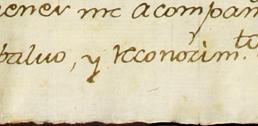 tener me acompañ
salvo, y Reconozim.to